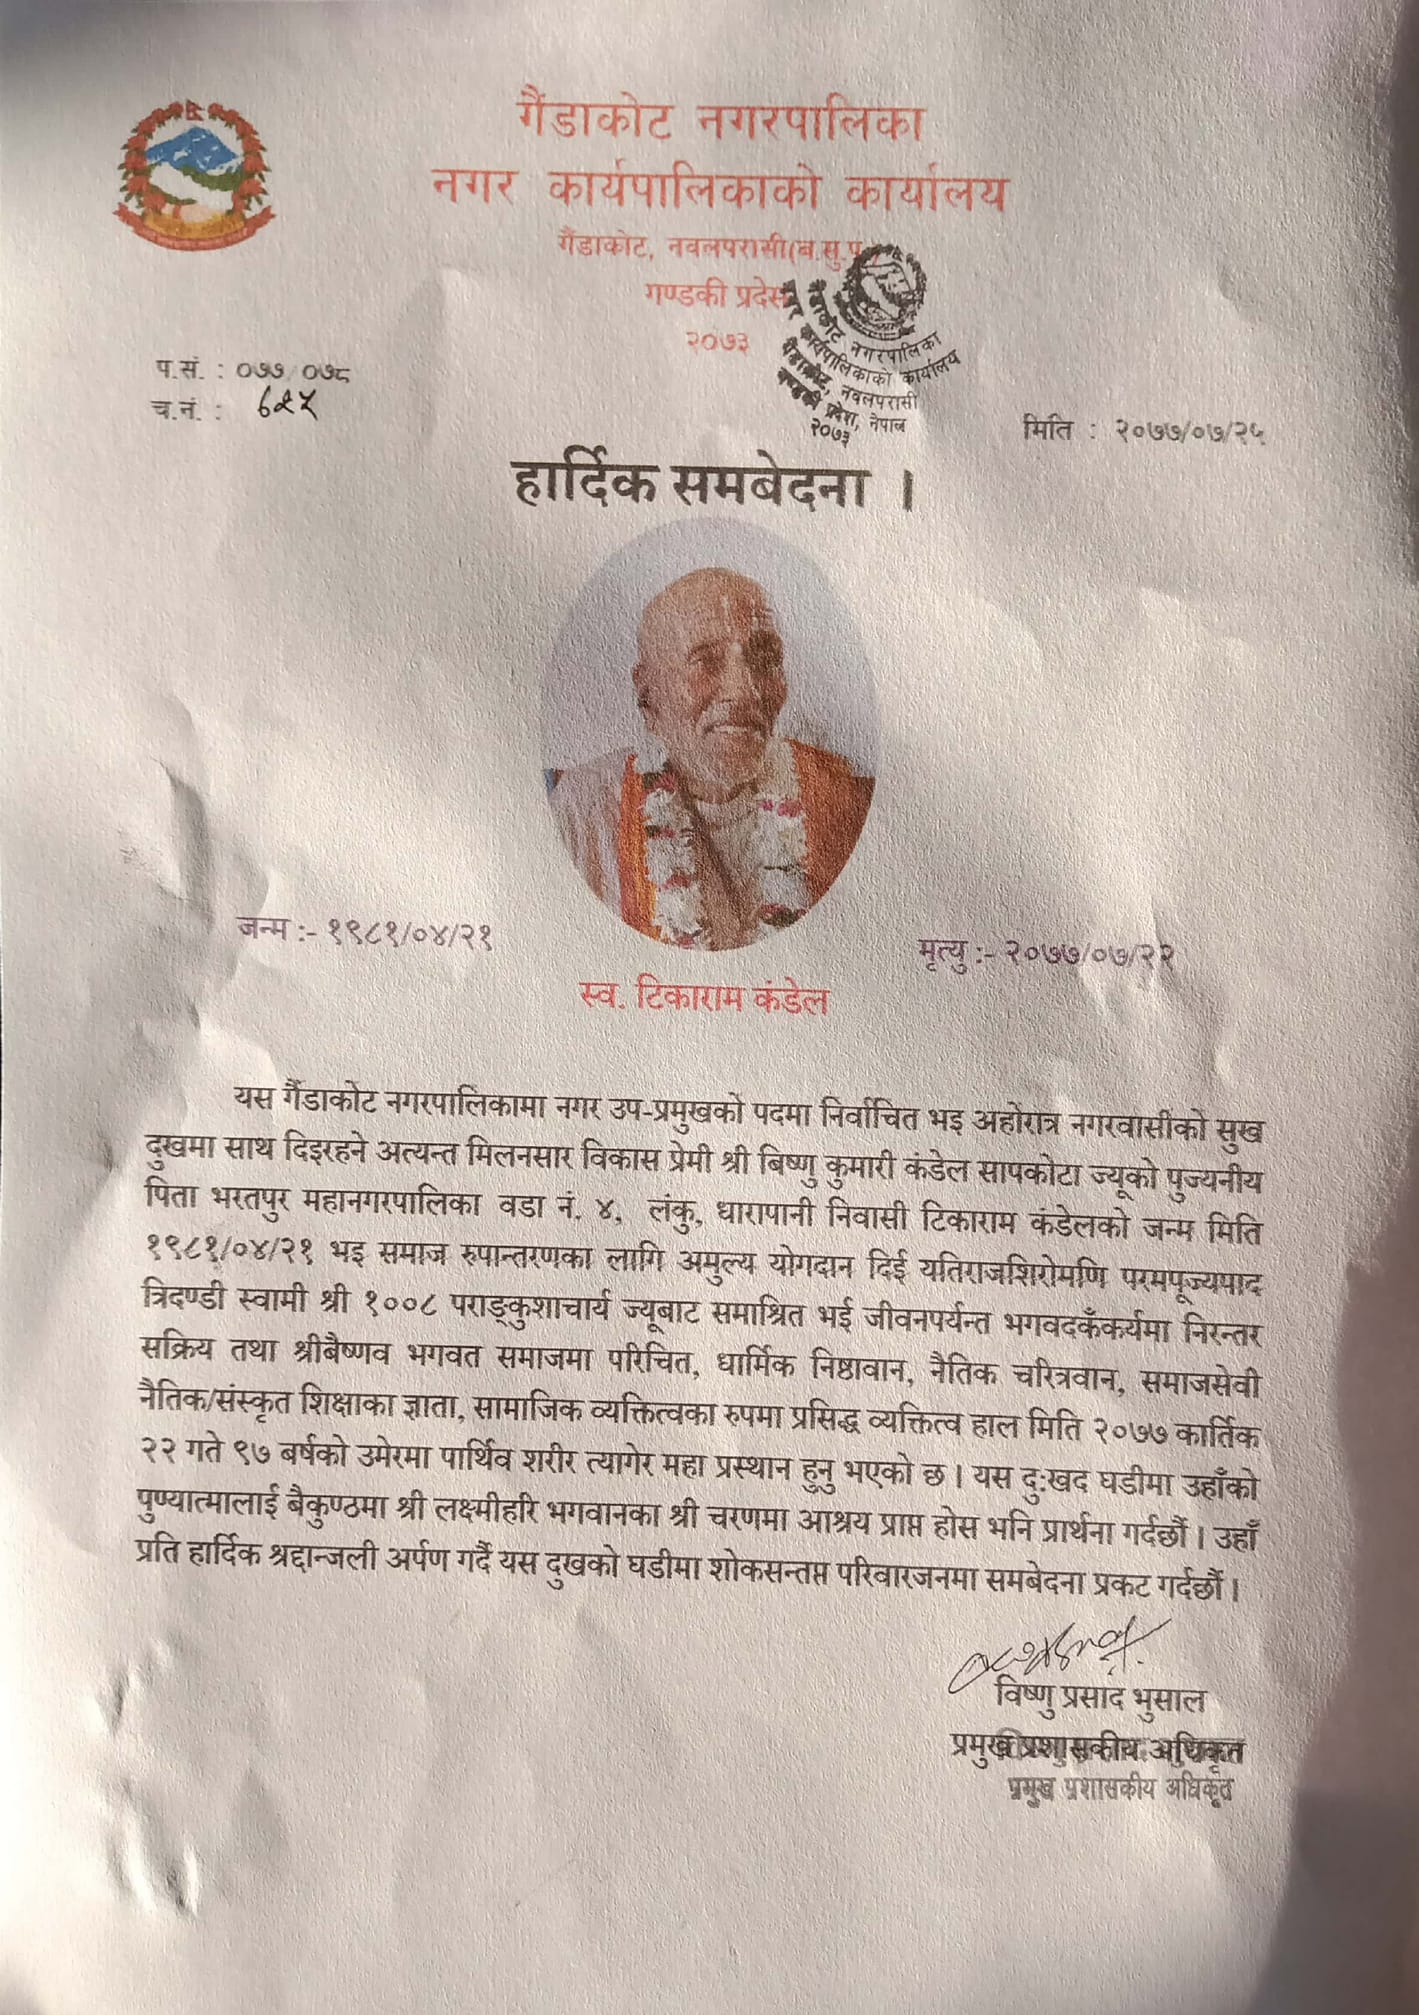 गैंडाकोट नगरपालिका
नगर कार्यपालिकाको कार्यालय
गैंडाकोट, नवलपरासी(ब.सु.पु.)
गण्डकी प्रदेश
२०७३
गैंडाकोट नगरपालिका
नगर कार्यपालिकाको कार्यालय
गैंडाकोट, नवलपरासी
गण्डकी प्रदेश, नेपाल
२०७३
प.सं. : ०७७/०७८
च.नं. : ६२५
मिति : २०७७/०७/२५
हार्दिक समबेदना ।
जन्म :- १९८१/०४/२१
मृत्यु :- २०७७/०७/२२
स्व. टिकाराम कंडेल
यस गैंडाकोट नगरपालिकामा नगर उप-प्रमुखको पदमा निर्वाचित भइ अहोरात्र नगरवासीको सुख
दुखमा साथ दिइरहने अत्यन्त मिलनसार विकास प्रेमी श्री बिष्णु कुमारी कंडेल सापकोटा ज्यूको पुज्यनीय
पिता भरतपुर महानगरपालिका वडा नं. ४, लंकु, धारापानी निवासी टिकाराम कंडेलको जन्म मिति
१९८१/०४/२१ भइ समाज रुपान्तरणका लागि अमुल्य योगदान दिई यतिराजशिरोमणि परमपूज्यपाद
त्रिदण्डी स्वामी श्री १००८ पराङ्कुशाचार्य ज्यूबाट समाश्रित भई जीवनपर्यन्त भगवदकैंकर्यमा निरन्तर
सक्रिय तथा श्रीबैष्णव भगवत समाजमा परिचित, धार्मिक निष्ठावान, नैतिक चरित्रवान, समाजसेवी
नैतिक/संस्कृत शिक्षाका ज्ञाता, सामाजिक व्यक्तित्वका रुपमा प्रसिद्ध व्यक्तित्व हाल मिति २०७७ कार्तिक
२२ गते ९७ बर्षको उमेरमा पार्थिव शरीर त्यागेर महा प्रस्थान हुनु भएको छ । यस दुःखद घडीमा उहाँको
पुण्यात्मालाई बैकुण्ठमा श्री लक्ष्मीहरि भगवानका श्री चरणमा आश्रय प्राप्त होस भनि प्रार्थना गर्दछौं । उहाँ
प्रति हार्दिक श्रद्दान्जली अर्पण गर्दै यस दुखको घडीमा शोकसन्तप्त परिवारजनमा समबेदना प्रकट गर्दछौं ।
विष्णु प्रसाद भुसाल
प्रमुख प्रशासकीय अधिकृत
प्रमुख प्रशासकीय अधिकृत